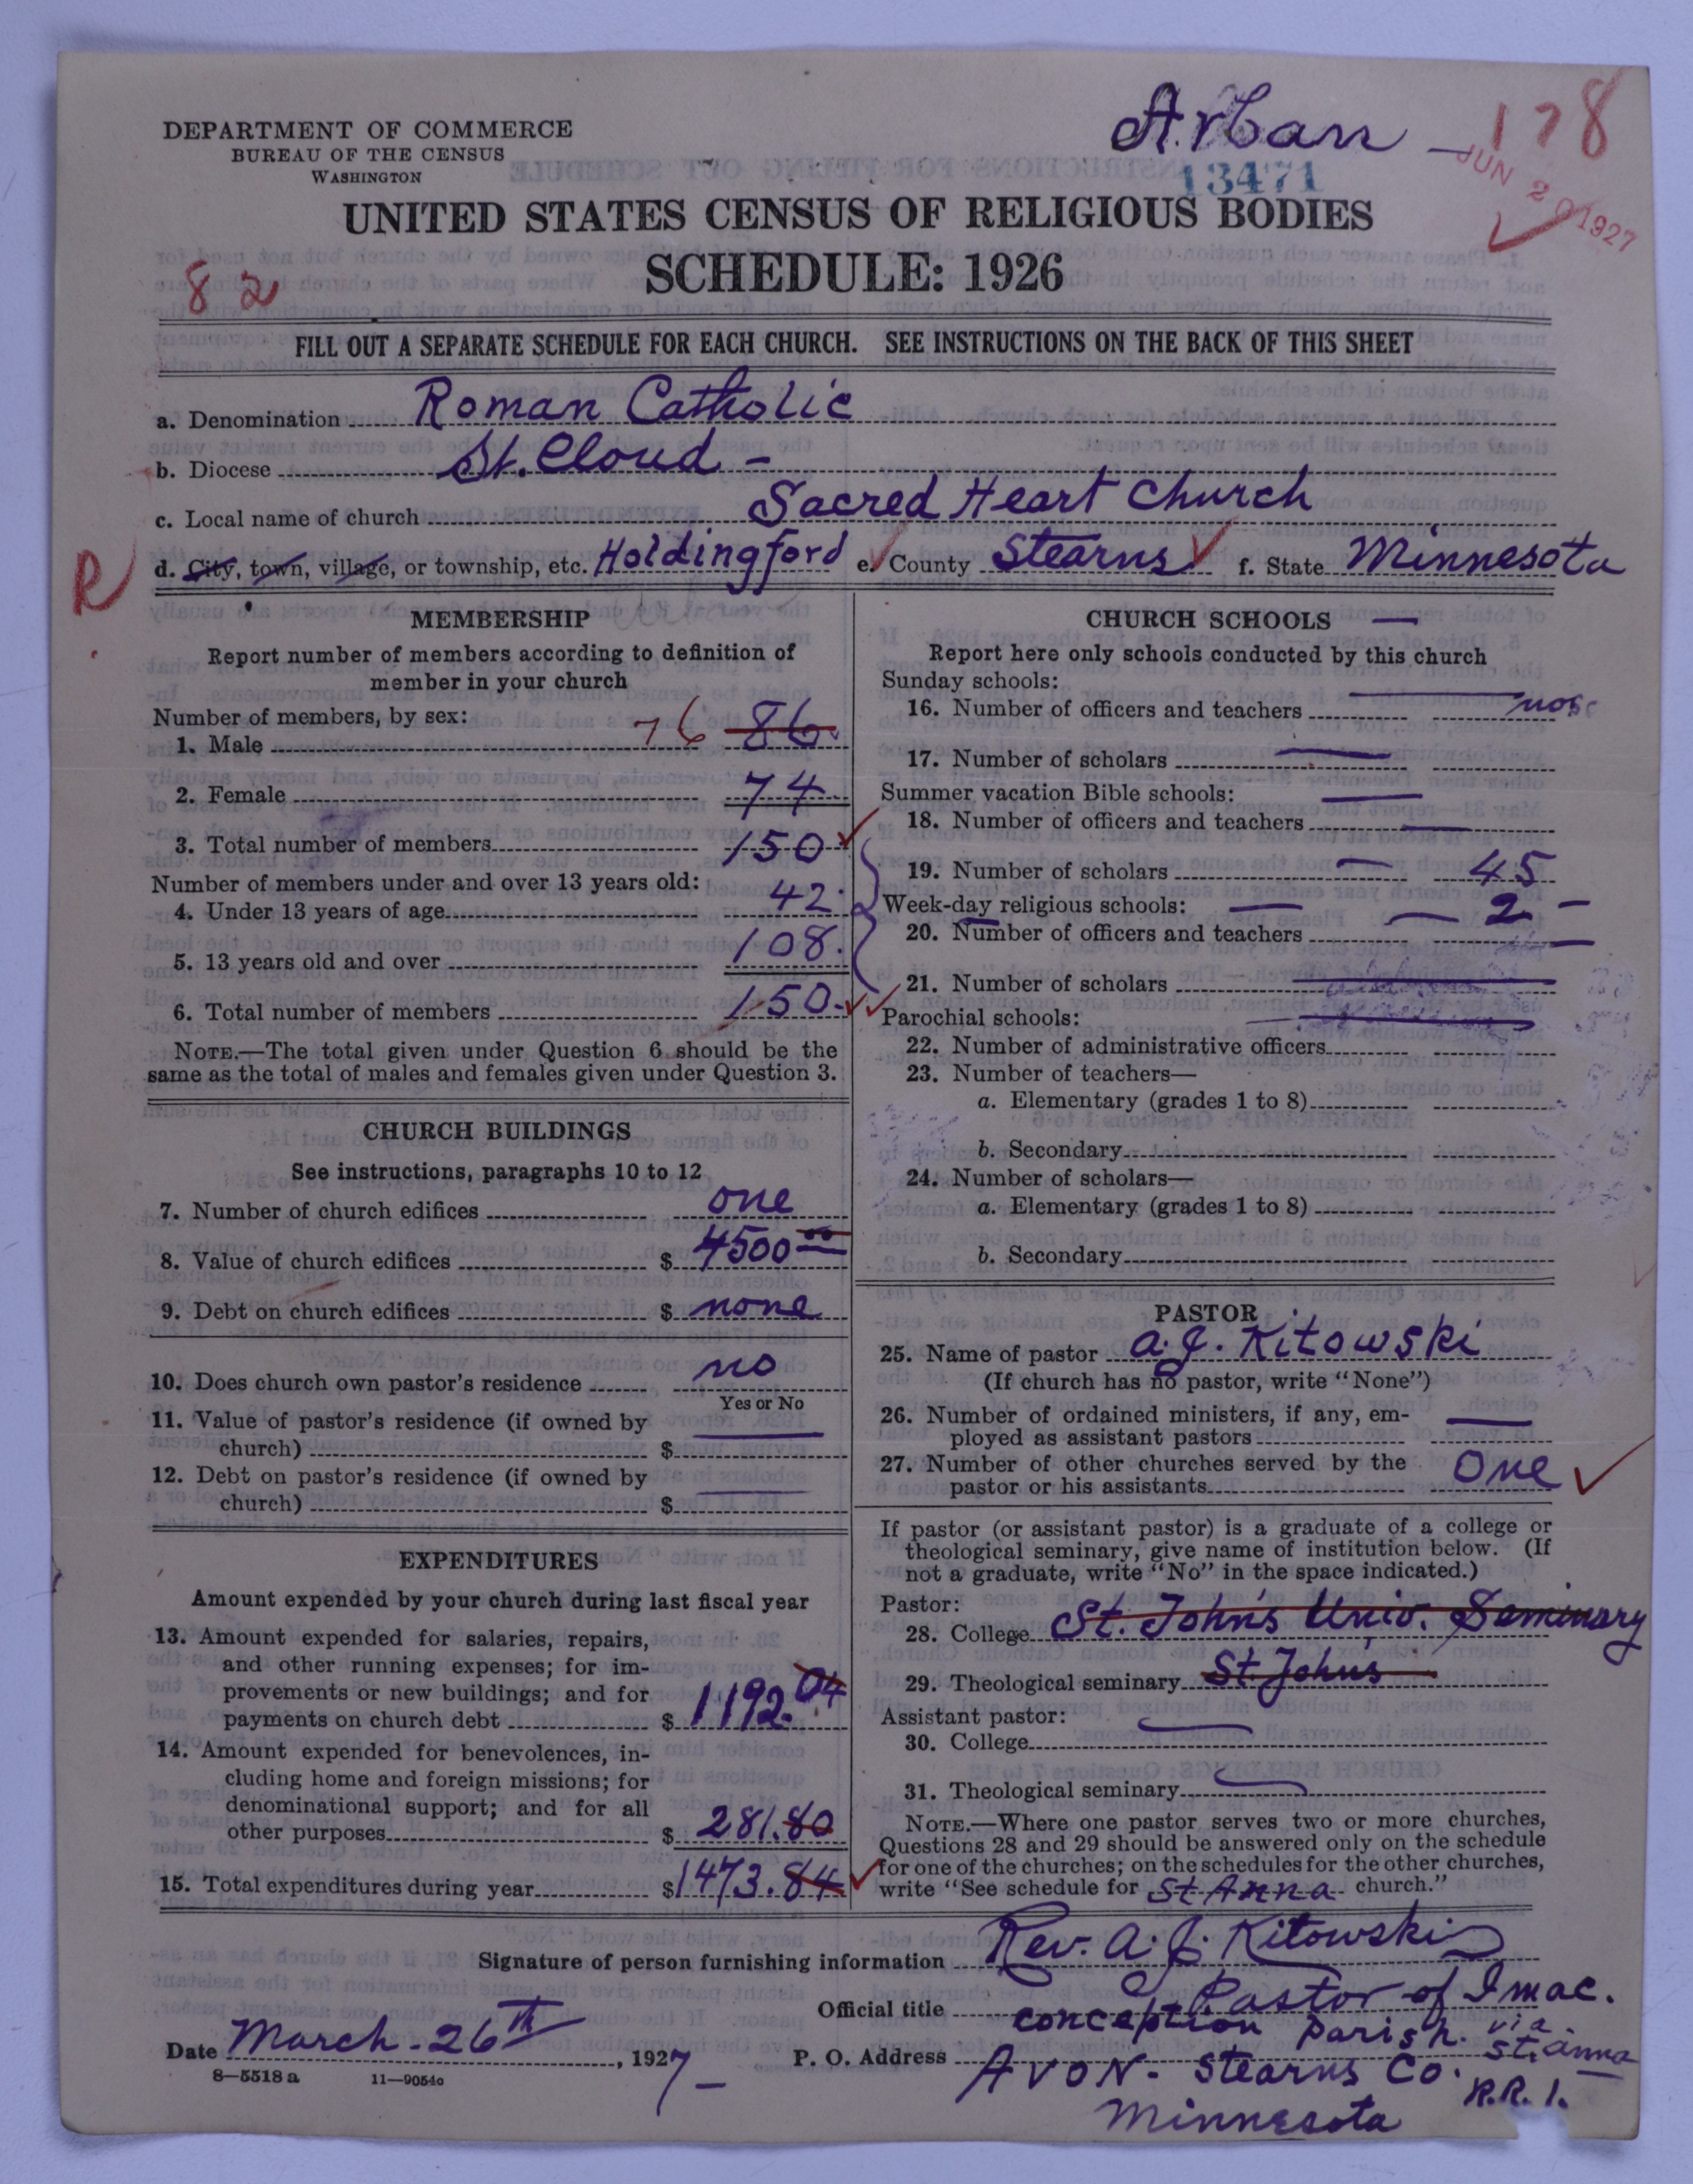 DEPARTMENT OF COMMERCE
BUREAU OF THE CENSUS
WASHINGTON
Arban — 178
13471
JUN 20 1927
UNITED STATES CENSUS OF RELIGIOUS BODIES
SCHEDULE: 1926
82
FILL OUT A SEPARATE SCHEDULE FOR EACH CHURCH. SEE INSTRUCTIONS ON THE BACK OF THIS SHEET
a. Denomination Roman Catholic
b. Diocese St. Cloud –
c. Local name of church Sacred Heart Church
R
d. City, town, village, or township, etc. Holdingford e. County Stearns f. State Minnesota
MEMBERSHIP
Report number of members according to definition of
member in your church
Number of members, by sex:
1. Male 76 86
2. Female 74
3. Total number of members 150
Number of members under and over 13 years old:
4. Under 13 years of age 42.
5. 13 years old and over 108.
6. Total number of members 150.
NOTE.—The total given under Question 6 should be the
same as the total of males and females given under Question 3.
CHURCH BUILDINGS
See instructions, paragraphs 10 to 12
7. Number of church edifices one
8. Value of church edifices $ 4500 00
9. Debt on church edifices $ none
10. Does church own pastor's residence no
Yes or No
11. Value of pastor's residence (if owned by
church) $ —
12. Debt on pastor's residence (if owned by
church) $ —
EXPENDITURES
Amount expended by your church during last fiscal year
13. Amount expended for salaries, repairs,
and other running expenses; for im-
provements or new buildings; and for
payments on church debt $ 1192.04
14. Amount expended for benevolences, in-
cluding home and foreign missions; for
denominational support; and for all
other purposes $ 281.80
15. Total expenditures during year $1473.84
CHURCH SCHOOLS —
Report here only schools conducted by this church
Sunday schools:
16. Number of officers and teachers none
17. Number of scholars —
Summer vacation Bible schools: —
18. Number of officers and teachers —
19. Number of scholars — 45
Week-day religious schools: — — 2 –
20. Number of officers and teachers —
21. Number of scholars
Parochial schools:
22. Number of administrative officers
23. Number of teachers—
a. Elementary (grades 1 to 8)
b. Secondary
24. Number of scholars—
a. Elementary (grades 1 to 8)
b. Secondary
PASTOR
25. Name of pastor A. J. Kitowski
(If church has no pastor, write "None")
26. Number of ordained ministers, if any, em-
ployed as assistant pastors —
27. Number of other churches served by the
pastor or his assistants One
If pastor (or assistant pastor) is a graduate of a college or
theological seminary, give name of institution below. (If
not a graduate, write "No" in the space indicated.)
Pastor:
28. College St. John's Univ. Seminary
29. Theological seminary St Johns
Assistant pastor:
30. College
31. Theological seminary
NOTE.—Where one pastor serves two or more churches,
Questions 28 and 29 should be answered only on the schedule
for one of the churches; on the schedules for the other churches,
write "See schedule for St Anna church."
Signature of person furnishing information Rev. A. J. Kitowski
Official title Pastor of Imac.
conception parish.
Date March - 26th, 1927 –
P. O. Address Avon - Stearns Co. via St. Anna
R.R. 1.
Minnesota
8—5518 a 11—9054o